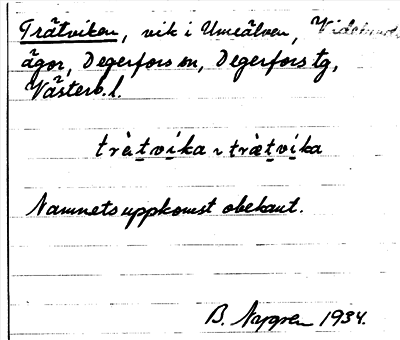 Trätviken, vik i Umeälven,
ägor, Degerfors sn, Degerfors tg,
Västerb. l.
trètvíka ~ trætvíka
Namnets uppkomst obekant.
B. Nygren 1934.